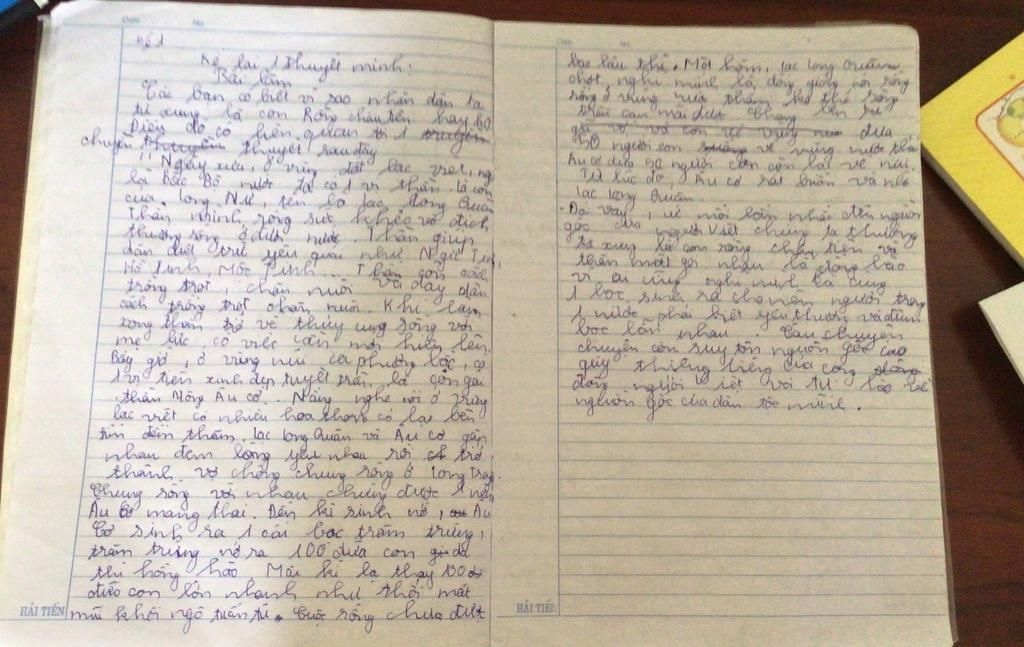 Đề 1
Kể lại 1 thuyết minh:
Bài làm
Các bạn có biết vì sao nhân dân ta
tự xưng là con Rồng cháu tiên hay ko
Điều đó có liên quan tới 1 truyền
chuyền thuyết sau đây
"Ngày xưa, ở vùng đất lạc việt, ng
là Bắc Bộ nước ta có 1 vị thần là con
của Long Nữ, tên là lạc Long Quân
Thần mình rồng sức khỏe vô địch
thường sống ở dưới nước. Thần giúp
dân diệt trừ yêu quái như Ngư Tinh
Hồ tinh, Mộc Tinh... Thần còn cách
trồng trọt, chăn nuôi và dạy dân
cách trồng trọt chăn nuôi. Khi làm
xong thần trở về thủy cung sống với
mẹ lúc có việc cần mới hiện lên.
Bấy giờ, ở vùng núi cao phương bắc, có
1 vị tiên xinh đẹp tuyệt trần, là con gái
thần Nông Âu cơ. Nàng nghe nói ở vùng
lạc việt có nhiều hoa thơm cỏ lạ bèn
tìm đến thăm. lạc long Quân và Âu cơ gặp
nhau đem lòng yêu nhau rồi trở
thành vợ chồng chung sống ở Long Trang
Chung sống với nhau chừng được 1 năm
Âu Cơ mang thai. Đến kì sinh nở, Âu
Cơ sinh ra 1 cái bọc trăm trứng,
trăm trứng nở ra 100 đứa con da
thì hồng hào Mãi kì lạ thay 100
đứa con lớn nhanh như thổi mặt
mũi khôi ngô tuấn tú. Cuộc sống chưa được
HẢI TIẾN
bao lâu thì. Một hôm, lạc long Quân
chợt nghĩ mình là dòng giống nòi rồng
sống ở vùng nước thẳm ko thể sống
trên cạn mãi được Chàng bèn từ
giã vợ và con về vùng đưa
50 người con về vùng nước thẳm
Âu cơ đưa 50 người con còn lại về núi.
Từ lúc đó, Âu cơ rất buồn và nhớ
lạc long Quân.
-Do vậy, về mỗi lần nhắc đến nguồn
gốc của người Việt chúng ta thường
tự xưng là con rồng cháu tiên và
thân mật gọi nhau là đồng bào
vì ai cũng nghĩ mình là cùng
1 bọc sinh ra cho nên người trong
1 nước phải biết yêu thương và đùm
bọc lẫn nhau. Câu chuyện
chuyện còn suy tôn nguồn gốc cao
quý thiêng liêng của cộng đồng
đồng người Việt và tự hào về
nguồn gốc của dân tộc mình.
HẢI TIẾN